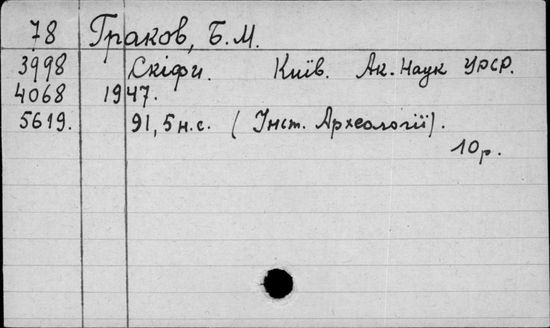 78 Граков, Б.М.
3998 Скіфи. Київ. Ак. Наук УРСР.
4068 1947.
5619. 91, 5 н.с. (Інст. Археології).
10 р.